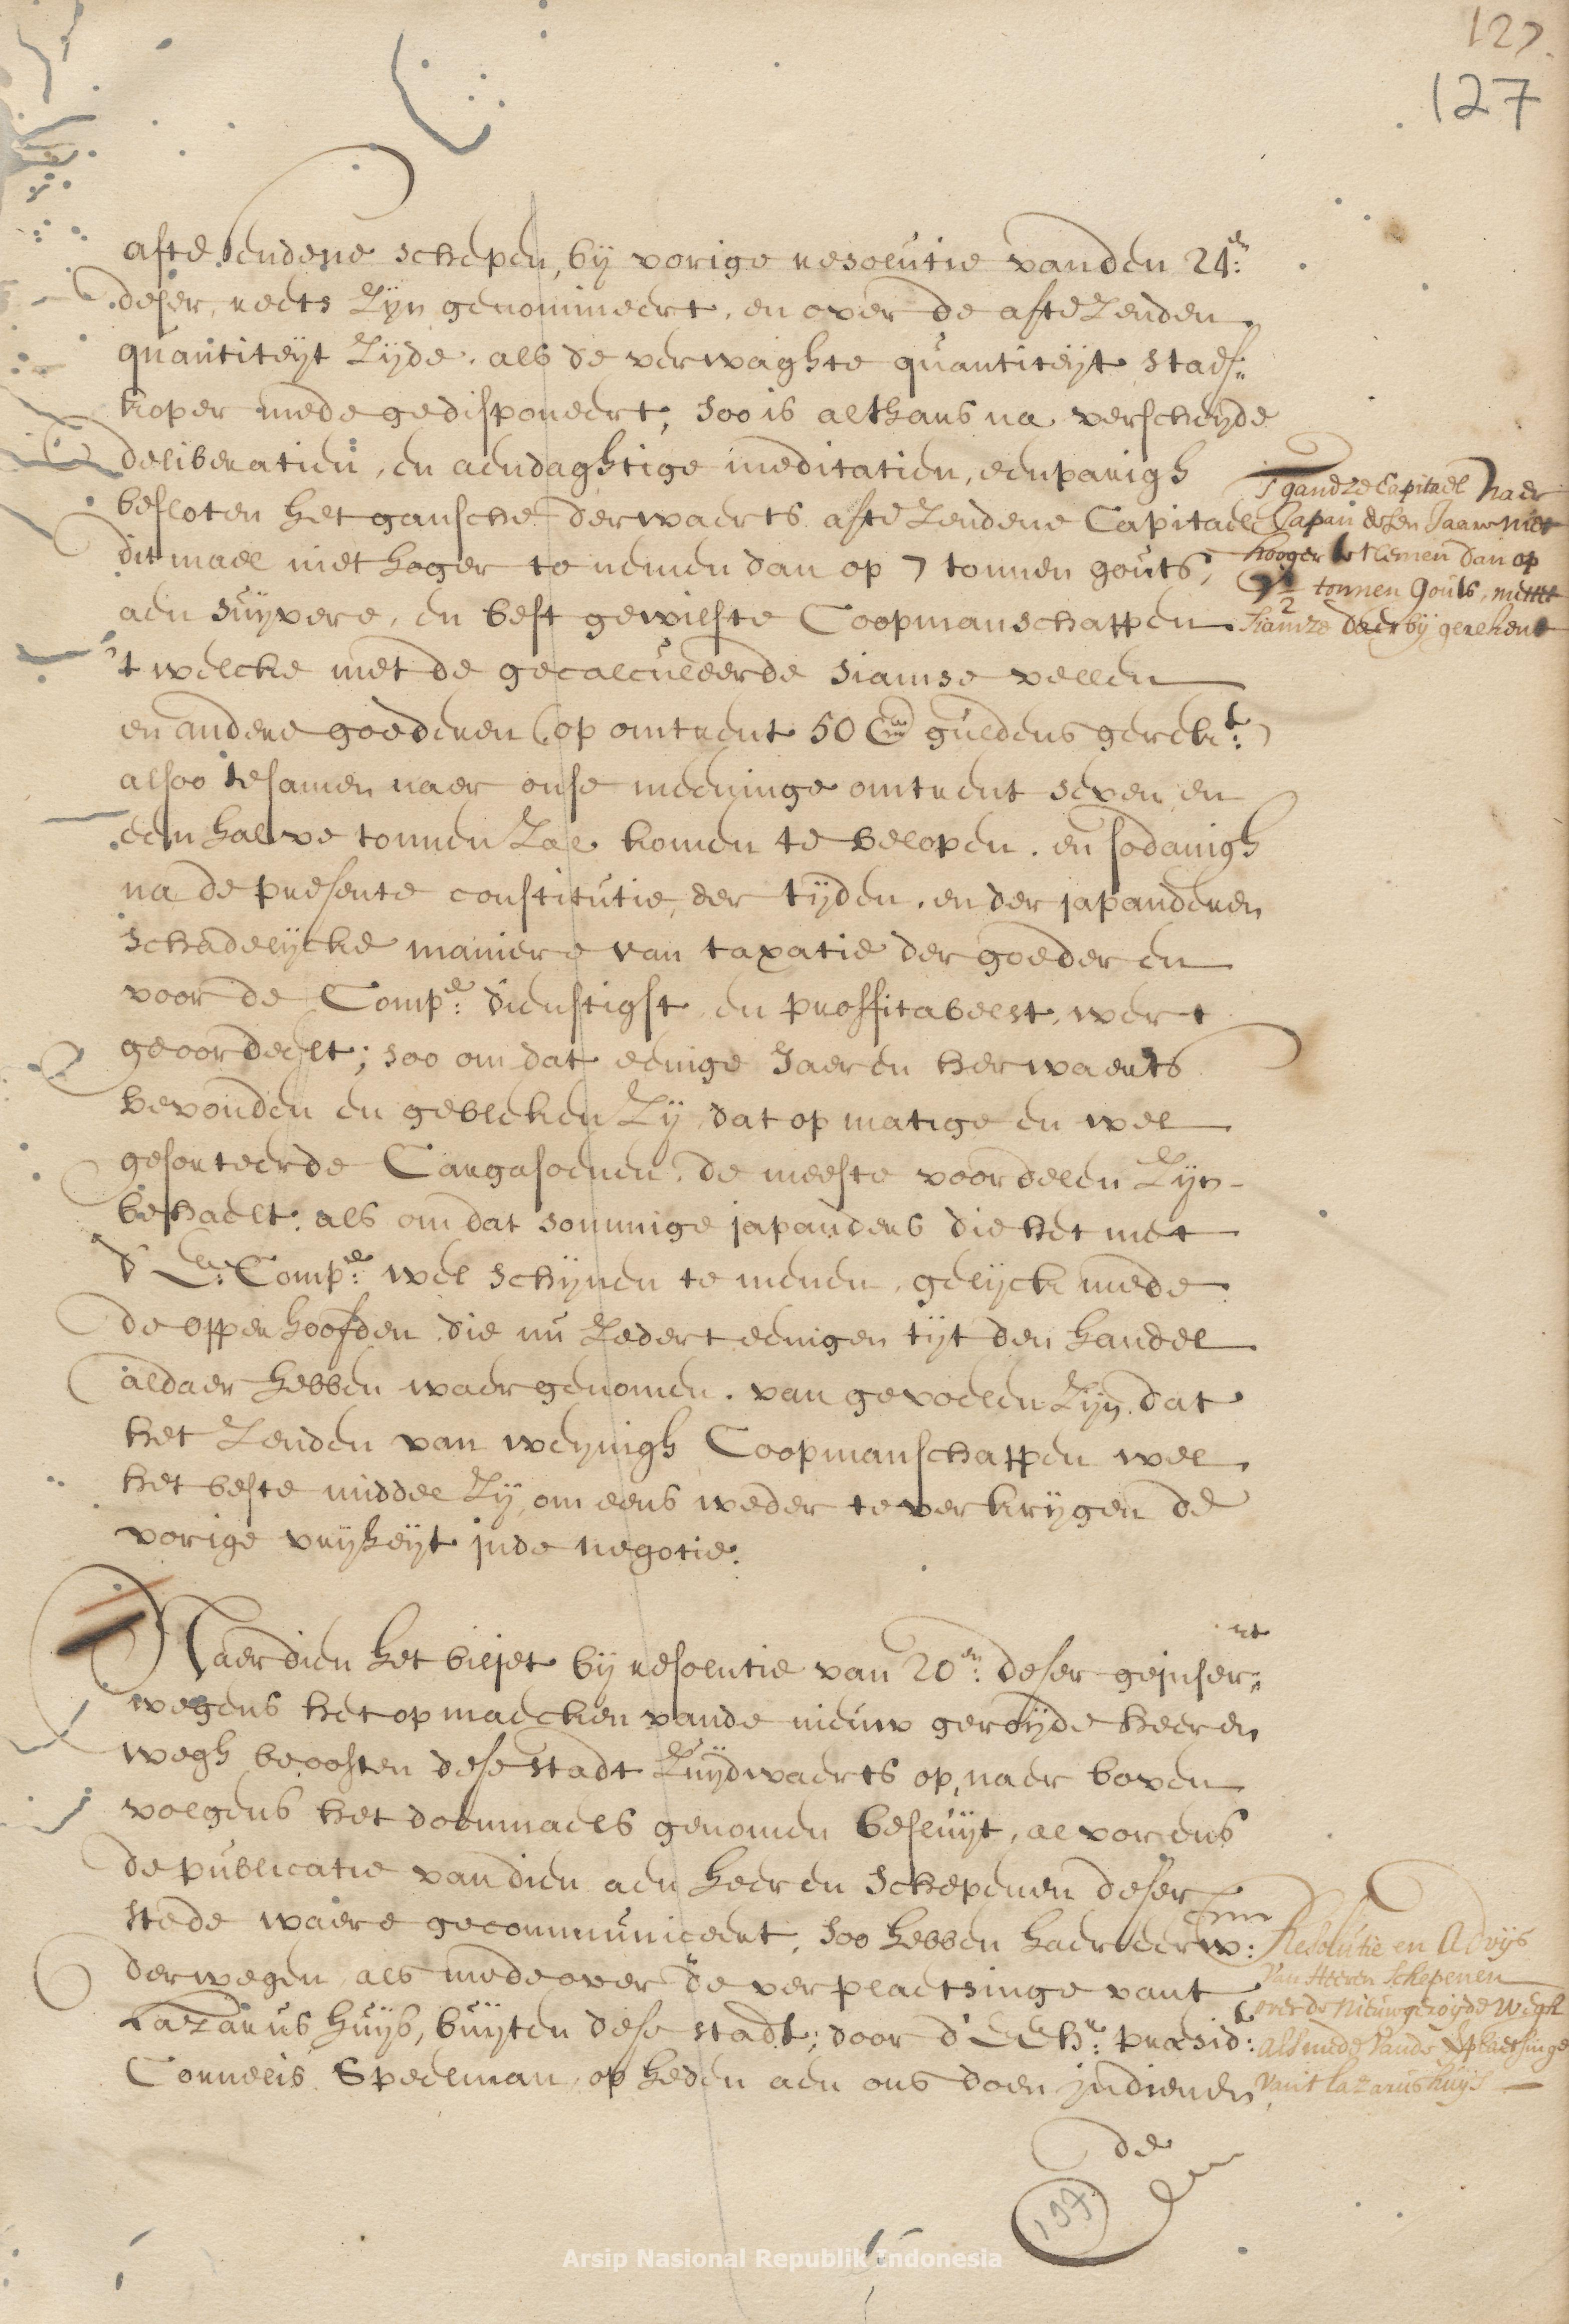 127.
127
afte sendene schepen, bij vorige resolutie vanden 24:en
deser, reets zijn genomineert, en over de afte zenden
quantiteijt zijde, als de verwaghte quantiteijt staef„
koper mede gedisponeert, soo is althans na verscheijde
deliberatien, en aendaghtige meditatien, eenparigh
besloten het gansche derwaerts afte zendene Capitael
dit mael niet hoger te nemen dan op 7 tonnen gouts,
aen suijvere, en best gewilste Coopmanschappen
't welcke met de gecalculeerde siamse vellen
en andere goederen (op omtrent 50 m guldens gerekt:)
alsoo tesamen naer onse meeninge omtrent seven en
een halve tonnen zal komen te belopen. en sodanigh
na de presente constitutie, der tijden, en der japanderen
schadelijcke maniere van taxatie der goederen
voor de Comp:e dienstigst, en proffitabelst, wert
geoordeelt; soo om dat eenige Jaeren herwaerts
bevonden en gebleken zij, dat op matige en wel
gesorteerde Cargasoenen, de meeste voordelen zijn
behaelt, als om dat sommige japanders die het met
d' E: Comp:e wel schijnen te menen, gelijck mede
de opperhoofden, die nu zedert eenigen tijt den handel
aldaer hebben waergenomen, van gevoelen zijn, dat
het zenden van weijnigh Coopmanschappen wel
het beste middel zij, om eens weder te verkrijgen de
vorige vrijheijt inde negotie.
't gandze Capitael naer
Japan desen Jaare niet
hooger te nemen dan op
7 1/2 tonnen Gouts, met het
Siamze daer bij gerekent
Naerdien het biljet bij resolutie van 20:en deser geinser„rt
wegens het opmaecken vande nieuw geroijde heeren
wegh beoosten dese stadt zuijdwaerts op, naer boven
volgens het doenmaels genomen besluijt, alvorens
de publicatie van dien aen heeren Schepenen deser
stede waere gecommuniceert, soo hebben haer eerw:
derwegen, als mede over de verplaetsinge vant
Lazarus huijs, buijten dese stadt; door d' E E hr: præsidt:
Cornelis Speelman, op heden aen ons doen indienen,
Resolutie en Advijs
Van Heeren Schepenen
over de nieuwgeroijde wegh
als mede vande verplaetsinge
van't Lazarus huijs
de
197.
Arsip Nasional Republik Indonesia